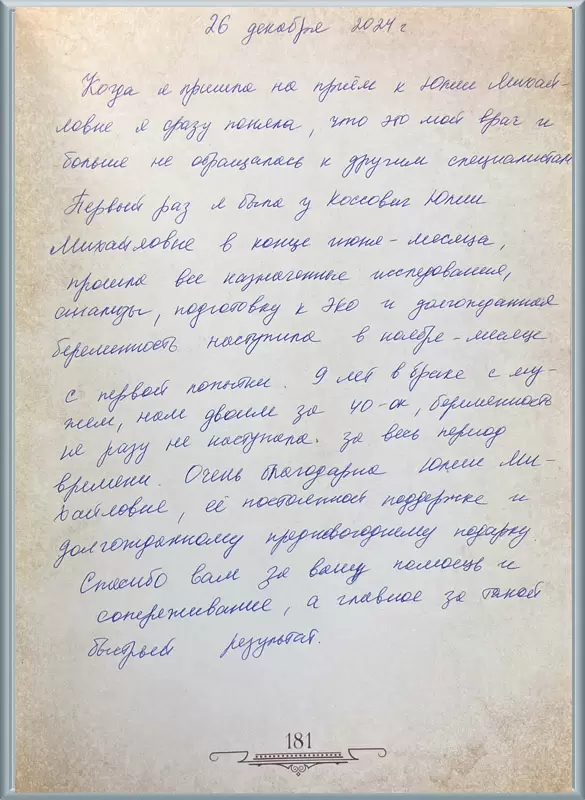 26 декабря 2024 г
Когда я пришла на приём к Юлии Михай-
ловне я сразу поняла, что это мой врач и
больше не обращалась к другим специалистам
Первый раз я была у Коссович Юлии
Михайловне в конце июня-месяца,
прошла все назначенные исследования,
анализы, подготовку к ЭКО и долгожданная
беременность наступила в ноябре-месяце
с первой попытки. 9 лет в браке с му-
жем, нам двоим за 40-ок, беременность
не разу не наступала. за весь период
времени. Очень благодарна Юлии Ми-
хайловне, её постоянной поддержке и
долгожданному предновогоднему подарку.
Спасибо вам за вашу помощь и
сопереживание, а главное за такой
быстрый результат.
181